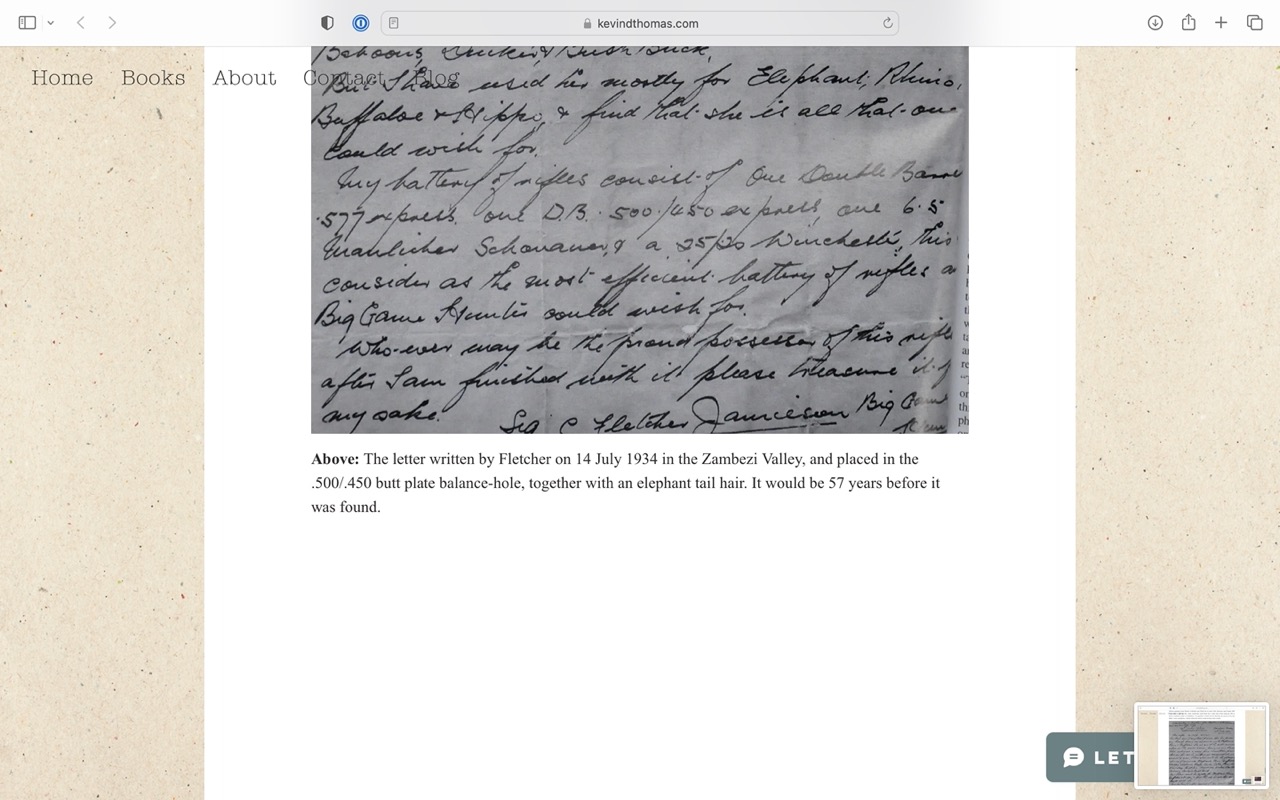 kevindthomas.com
Home Books About Contact Blog
Baboons, & Bush Buck,
But I have used her mostly for Elephant, Rhino,
Buffaloe & Hippo, & find that she is all that one
could wish for.
My battery of rifles consist of One Double Barre
.577 express. one D.B. .500/450 express, one 6.5
Manlicher Schonauer, & a 25/20 Winchester, this
consider as the most efficient battery of rifles a
Big Game Hunter could wish for.
Who-ever may be the proud possessor of this rifle
after I am finished with it please treasure it f
my sake.
Sig C Fletcher Jamieson Big Game
Above: The letter written by Fletcher on 14 July 1934 in the Zambezi Valley, and placed in the
.500/.450 butt plate balance-hole, together with an elephant tail hair. It would be 57 years before it
was found.
LET